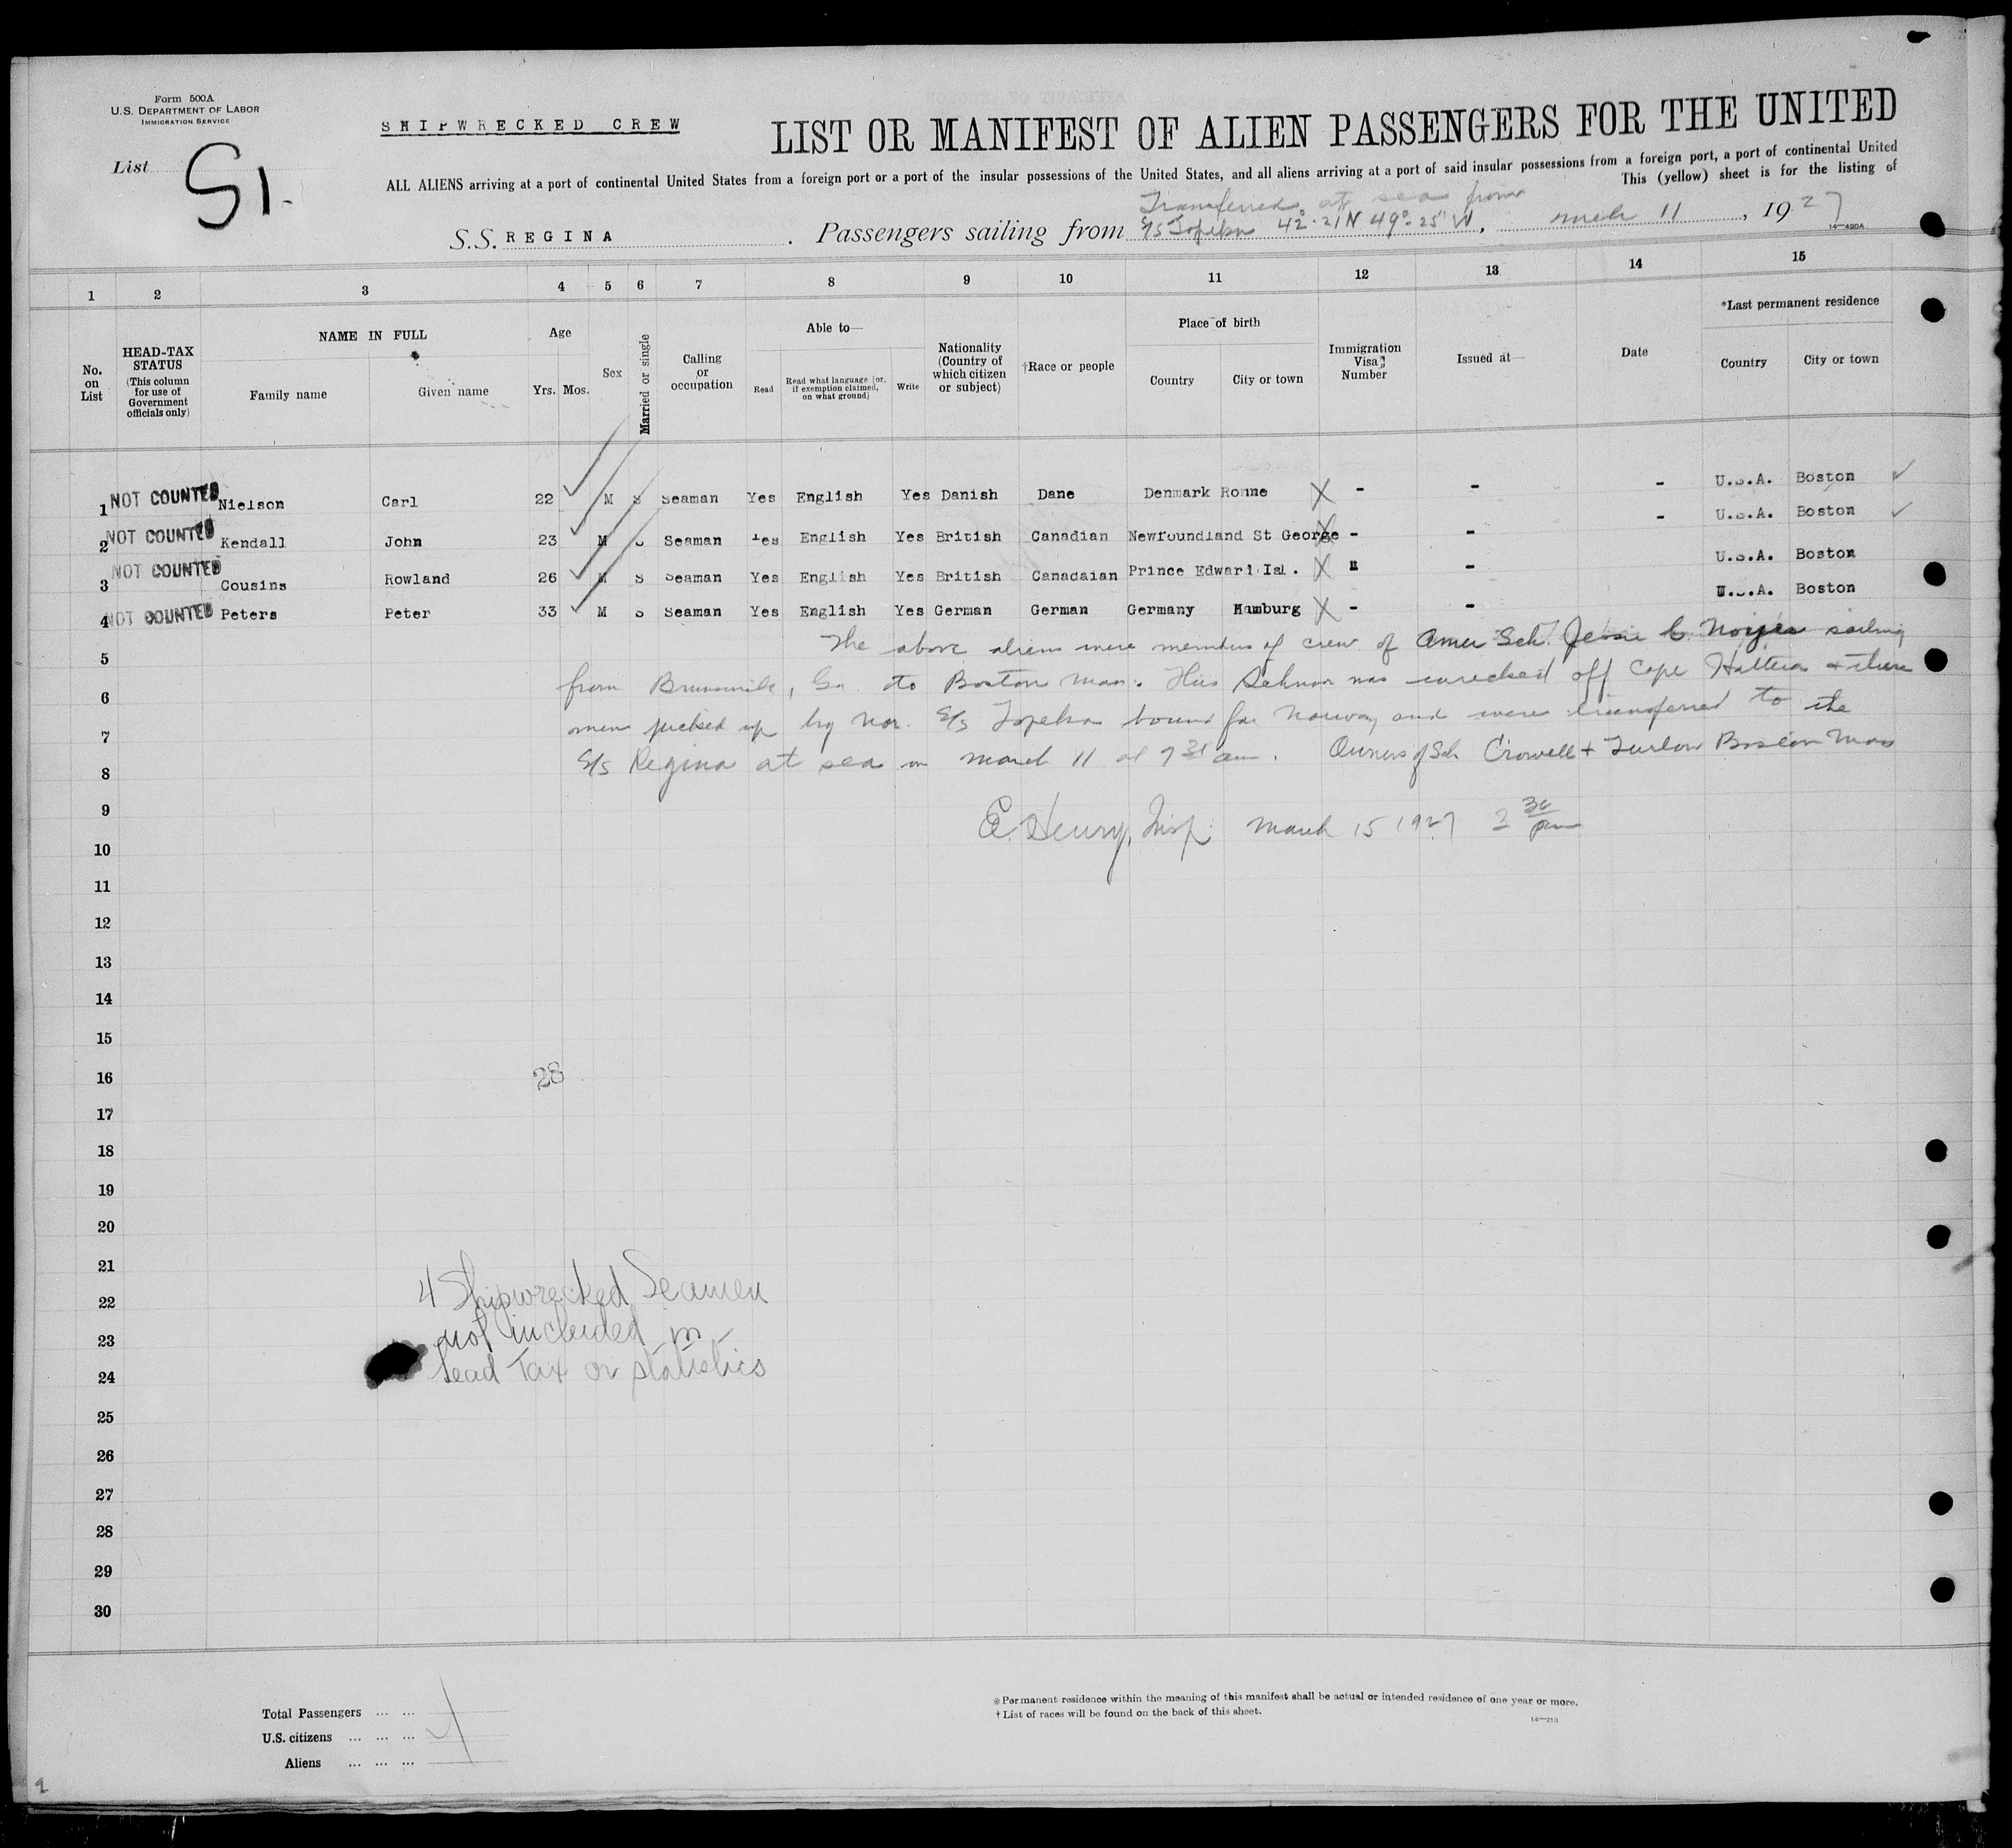 Form 500A
U.S. DEPARTMENT OF LABOR
IMMIGRATION SERVICE
SHIPWRECKED CREW
LIST OR MANIFEST OF ALIEN PASSENGERS FOR THE UNITED
List S1.
ALL ALIENS arriving at a port of continental United States from a foreign port or a port of the insular possessions of the United States, and all aliens arriving at a port of said insular possessions from a foreign port, a port of continental United
This (yellow) sheet is for the listing of
Transferred at sea from
S.S. REGINA . Passengers sailing from S/S Topeka 42°-21'N 49°-25" W, March 11, 1927
14—430A
1 2 3 4 5 6 7 8 9 10 11 12 13 14 15
No. on List
HEAD-TAX STATUS (This column for use of Government officials only)
NAME IN FULL
Family name Given name
Age
Yrs. Mos.
Sex
Married or single
Calling or occupation
Able to—
Read
Read what language [or, if exemption claimed, on what ground]
Write
Nationality (Country of which citizen or subject)
†Race or people
Place of birth
Country City or town
Immigration Visa Number
Issued at—
Date
*Last permanent residence
Country City or town
1 NOT COUNTED Nielson Carl 22 M S Seaman Yes English Yes Danish Dane Denmark Ronne X - - - U.S.A. Boston
2 NOT COUNTED Kendall John 23 M S Seaman Yes English Yes British Canadian Newfoundland St George X - - - U.S.A. Boston
3 NOT COUNTED Cousins Rowland 26 M S Seaman Yes English Yes British Canadaian Prince Edward Isl. X " - U.S.A. Boston
4 NOT COUNTED Peters Peter 33 M S Seaman Yes English Yes German German Germany Hamburg X - - U.S.A. Boston
The above aliens were members of crew of Amer Sch. Jessie C. Noyes sailing
5
from Brunswick, Ga. to Boston Mass. This was wrecked off Cape Hatteras & these
6
men picked up by Nor. S/S Topeka bound for Norway and were transferred to the
7
S/S Regina at sea on March 11 at 7 am. Owners of Sch Crowell + Turlow Boston Mass
8
9
E. Henry, Insp. March 15 1927 3 30 pm
10
11
12
13
14
15
16
28
17
18
19
20
21
4 Shipwrecked Seamen
22
not included in
23
head Tax or statistics
24
25
26
27
28
29
30
Total Passengers ... ...
U.S. citizens ... ... ...
Aliens ... ... ...
*Permanent residence within the meaning of this manifest shall be actual or intended residence of one year or more.
†List of races will be found on the back of this sheet.
14—213